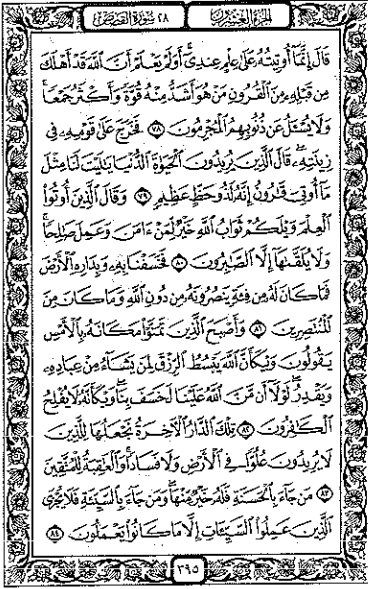 الجزء العشرون ٢٨ سورة القصص
قَالَ إِنَّمَا أُوتِيتُهُ عَلَىٰ عِلْمٍ عِندِىٓ أَوَلَمْ يَعْلَمْ أَنَّ ٱللَّهَ قَدْ أَهْلَكَ
مِن قَبْلِهِۦ مِنَ ٱلْقُرُونِ مَنْ هُوَ أَشَدُّ مِنْهُ قُوَّةً وَأَكْثَرُ جَمْعًا
وَلَا يُسْـَٔلُ عَن ذُنُوبِهِمُ ٱلْمُجْرِمُونَ ٧٨ فَخَرَجَ عَلَىٰ قَوْمِهِۦ فِى
زِينَتِهِۦ قَالَ ٱلَّذِينَ يُرِيدُونَ ٱلْحَيَوٰةَ ٱلدُّنْيَا يَـٰلَيْتَ لَنَا مِثْلَ
مَآ أُوتِىَ قَـٰرُونُ إِنَّهُۥ لَذُو حَظٍّ عَظِيمٍ ٧٩ وَقَالَ ٱلَّذِينَ أُوتُوا۟
ٱلْعِلْمَ وَيْلَكُمْ ثَوَابُ ٱللَّهِ خَيْرٌ لِّمَنْ ءَامَنَ وَعَمِلَ صَـٰلِحًا
وَلَا يُلَقَّىٰهَآ إِلَّا ٱلصَّـٰبِرُونَ ٨٠ فَخَسَفْنَا بِهِۦ وَبِدَارِهِ ٱلْأَرْضَ
فَمَا كَانَ لَهُۥ مِن فِئَةٍ يَنصُرُونَهُۥ مِن دُونِ ٱللَّهِ وَمَا كَانَ مِنَ
ٱلْمُنتَصِرِينَ ٨١ وَأَصْبَحَ ٱلَّذِينَ تَمَنَّوْا۟ مَكَانَهُۥ بِٱلْأَمْسِ
يَقُولُونَ وَيْكَأَنَّ ٱللَّهَ يَبْسُطُ ٱلرِّزْقَ لِمَن يَشَآءُ مِنْ عِبَادِهِۦ
وَيَقْدِرُ لَوْلَآ أَن مَّنَّ ٱللَّهُ عَلَيْنَا لَخَسَفَ بِنَا وَيْكَأَنَّهُۥ لَا يُفْلِحُ
ٱلْكَـٰفِرُونَ ٨٢ تِلْكَ ٱلدَّارُ ٱلْـَٔاخِرَةُ نَجْعَلُهَا لِلَّذِينَ
لَا يُرِيدُونَ عُلُوًّا فِى ٱلْأَرْضِ وَلَا فَسَادًا وَٱلْعَـٰقِبَةُ لِلْمُتَّقِينَ
٨٣ مَن جَآءَ بِٱلْحَسَنَةِ فَلَهُۥ خَيْرٌ مِّنْهَا وَمَن جَآءَ بِٱلسَّيِّئَةِ فَلَا يُجْزَى
ٱلَّذِينَ عَمِلُوا۟ ٱلسَّيِّـَٔاتِ إِلَّا مَا كَانُوا۟ يَعْمَلُونَ ٨٤
٣٩٥